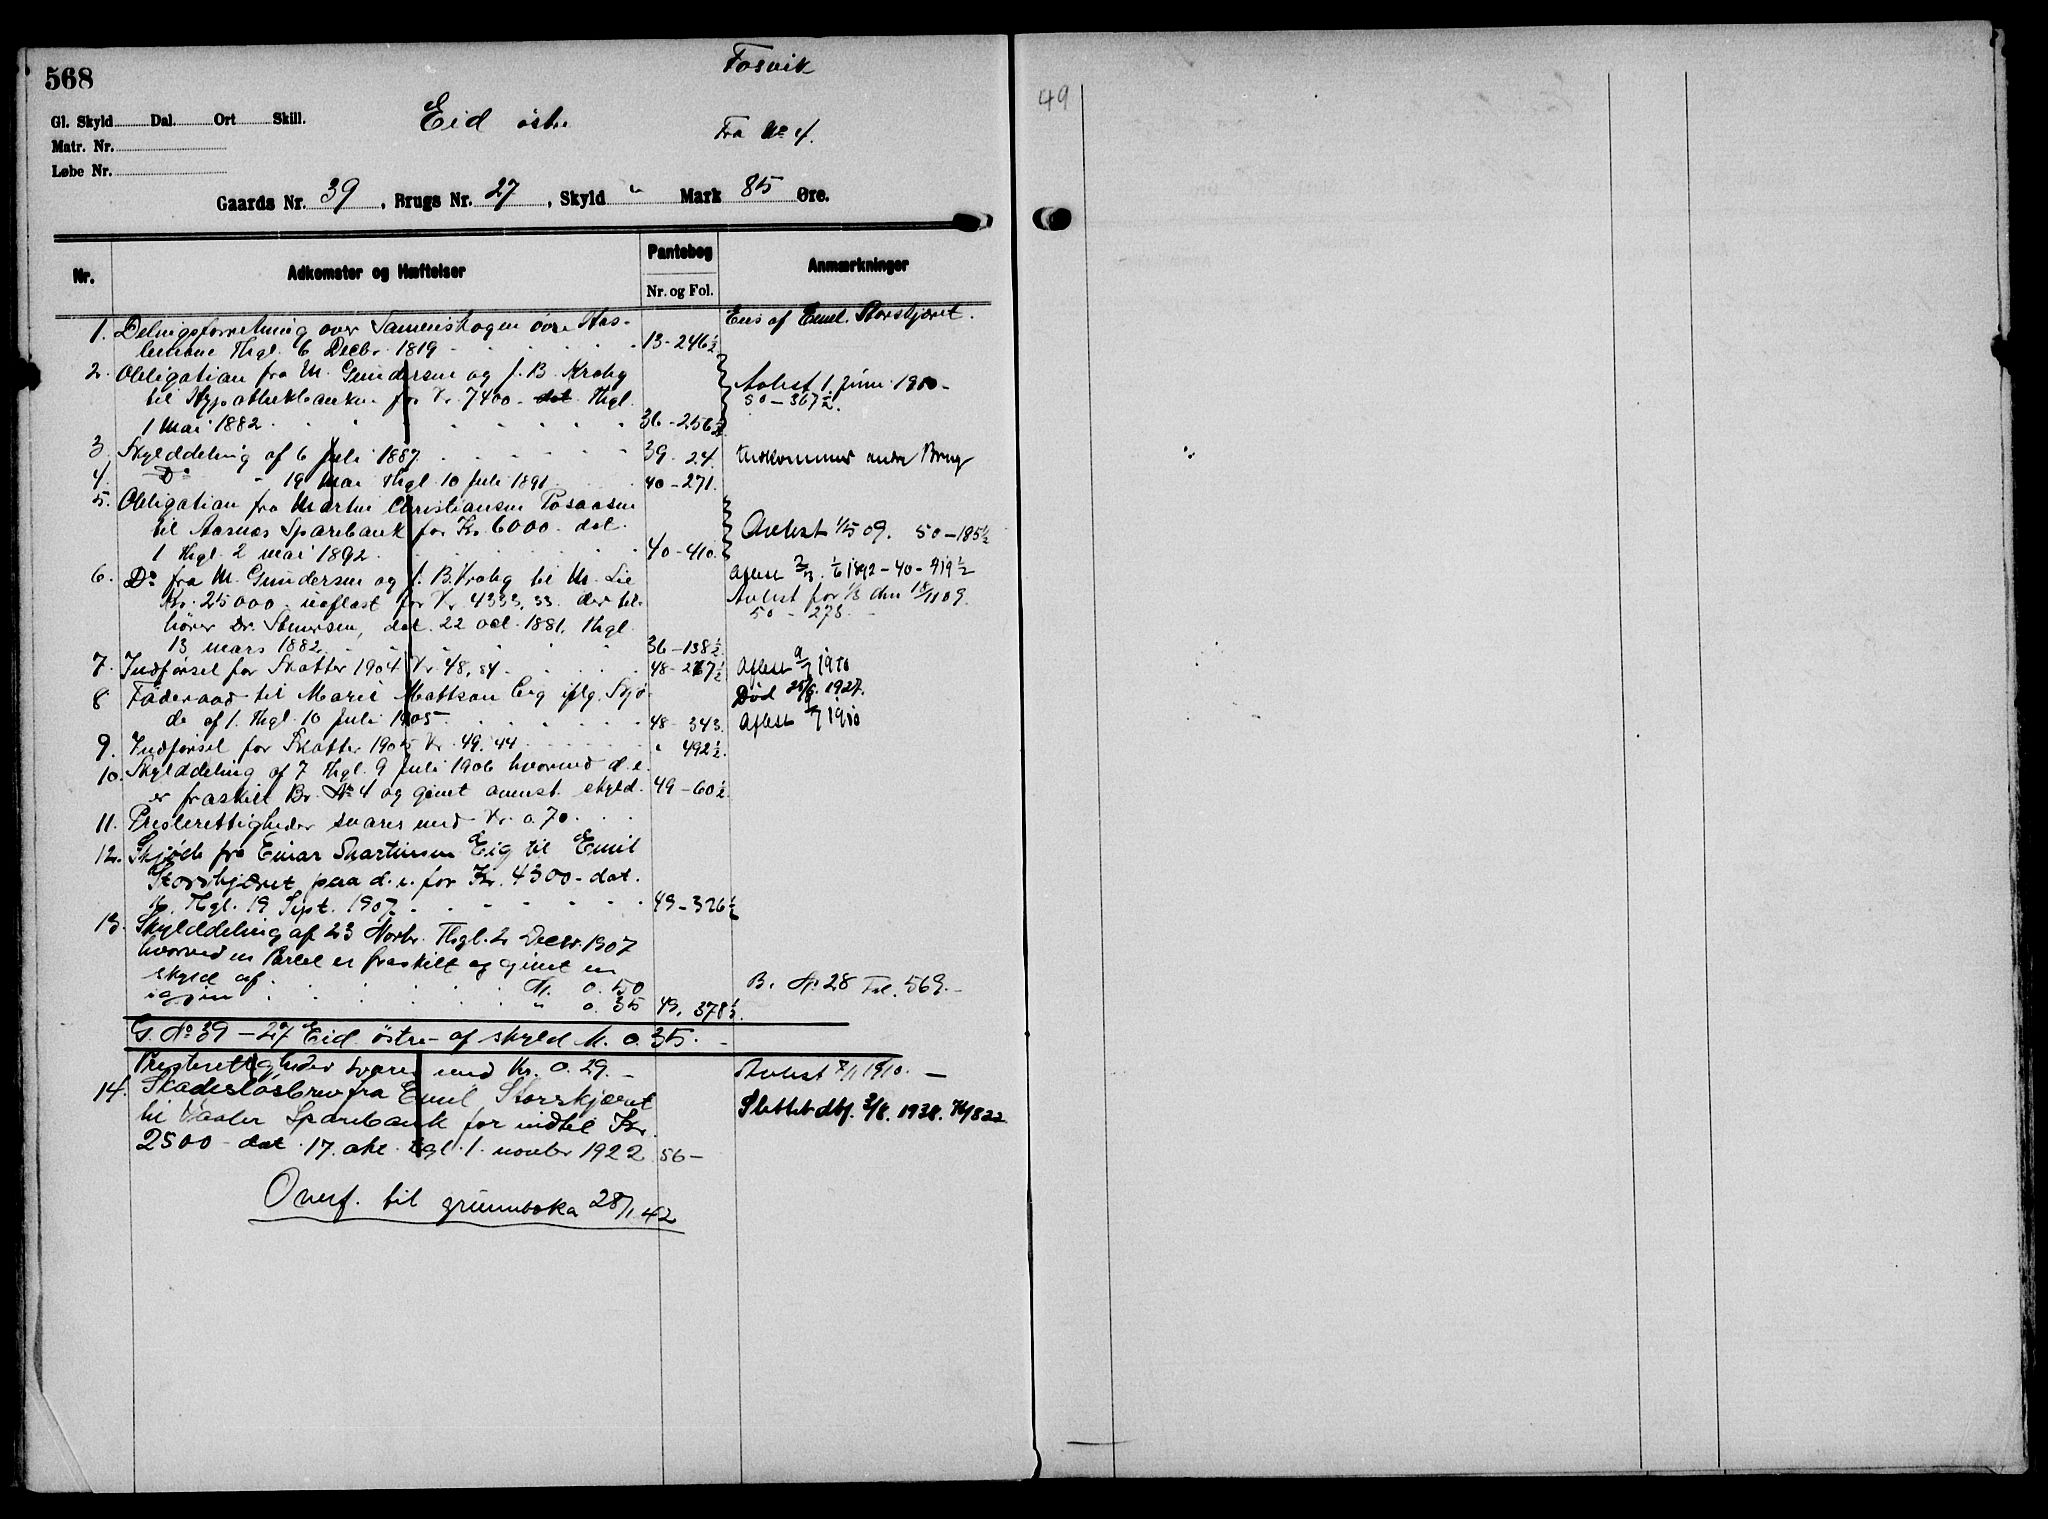 568
Fosvik
Gl. Skyld Dal. Ort Skill.
Eid østre
Fra No 4.
Matr. Nr.
Løbe Nr.
Gaards Nr. 39, Brugs Nr. 27, Skyld " Mark 85 Øre.
Nr. Adkomster og Hæftelser Pantebog Anmærkninger
Nr. og Fol.
Eies af Emil Storskjæret.
1. Delingsforretning over Sameiskogen øvre Aas-
Thgl. 6 Decbr. 1819 13-246½
2. Obligation fra M. Gundersen og J. B. Krohg
til Hypothekbanken for Kr. 7400 - dat. Thgl.
1 Mai 1882 36-256½
Avlest 1. juni 1910-
50-367½.
3. Skylddeling af 6 Juli 1887. 39-24. Vedkommer andre Brug
4. Do - 19 Mai Thgl. 10 Juli 1891 40-271.
5. Obligation fra Martin Christiansen Posaasen
til Aasnes Sparebank for Kr 6000 - dat.
1 Thgl. 2 mai 1892. 40-410.
Avlest 1/5 09. 50-185½
6. Do fra M. Gundersen og J. B. Krohg til M. Lie
Kr. 25000 - uaflæst for Kr. 4333,33 der til-
hører Dr. Stenersen, dat. 22 oct. 1881, Thgl.
13 mars 1882 36-138½
Aflest 2/3. 1/6 1892-40-419½
Avlest for 1/3 den 18/11 09.
50-273-
7. Indførsel for Skatter 1904 Kr. 48,84 48-267½ Aflest 9/7 1910
8 Føderaad til Marie Mattson Eig iflg. Skjø-
de af 1. Thgl. 10 Juli 1905 48-343.
Død 25/9. 1927.
Aflest 9/7 1910
9. Indførsel for Skatter 1905 Kr. 49,44 " 492½
10. Skylddeling af 7 Thgl. 9 Juli 1906 hvorved d. e.
er fraskilt Br. No 4 og givet anmst. skyld. 49-60½
11. Presterettigheder svares med Kr. 0.70.
12. Skjøde fra Einar Martinsen Eig til Emil
Storskjæret paa d. e. for Kr. 4300 - dat.
16. Thgl. 19 Sept. 1907. 49-326½
13. Skylddeling af 23 Novbr. Thgl. 2 Decbr. 1907
hvorved en Parcel er fraskilt og givet en
skyld af M. 0.50 B. No 28 Fol. 569.-
igjen " 0.35 49, 378½.
G. No 39-27 Eid østre - af skyld M. 0.35.
Presterettigheder svares med Kr. 0.29.- Avlest 7/1 1910.-
14. Skadesløsbrev fra Emil Storskjæret
til Vaaler Sparebank for indtil Kr.
2500 - dat. 17. okt. tgl. 1. novbr 1922 56-
Slettet dbf. 2/8. 1938.
Overf. til grunnboka 28/1.42
49